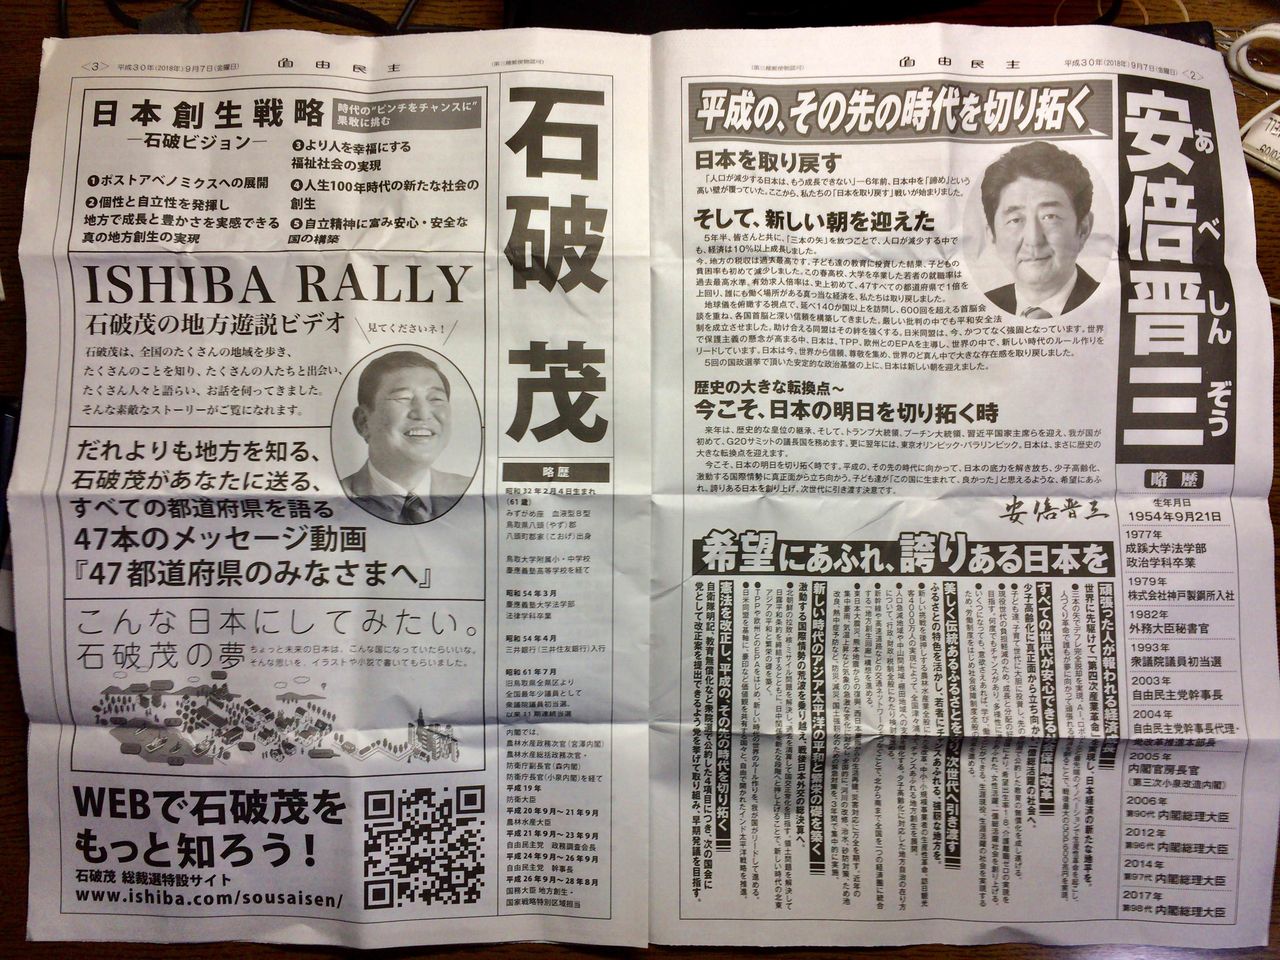 平成30年(2018年)9月7日(金曜日) 〈2〉
自由民主
(第三種郵便物認可)
安倍晋三
あべ しんぞう
平成の、その先の時代を切り拓く
日本を取り戻す
「人口が減少する日本は、もう成長できない」―6年前、日本中を「諦め」という
高い壁が覆っていた。ここから、私たちの「日本を取り戻す」戦いが始まりました。
そして、新しい朝を迎えた
5年半、皆さんと共に、「三本の矢」を放つことで、人口が減少する中で
も、経済は10%以上成長しました。
今、地方の税収は過去最高です。子ども達の教育に投資した結果、子どもの
貧困率も初めて減少しました。この春高校、大学を卒業した若者の就職率は
過去最高水準。有効求人倍率は、史上初めて、47すべての都道府県で1倍を
上回り、誰にも働く場所がある真っ当な経済を、私たちは取り戻しました。
地球儀を俯瞰する視点で、延べ140か国以上を訪問し、600回を超える首脳会
談を重ね、各国首脳と深い信頼を構築してきました。厳しい批判の中でも平和安全法
制を成立させました。助け合える同盟はその絆を強くする。日米同盟は、今、かつてなく強固となっています。世界
で保護主義の懸念が高まる中、日本は、TPP、欧州とのEPAを主導し、世界の中で、新しい時代のルール作りを
リードしています。日本は今、世界から信頼、尊敬を集め、世界のど真ん中で大きな存在感を取り戻しました。
5回の国政選挙で頂いた安定的な政治基盤の上に、日本は新しい朝を迎えました。
歴史の大きな転換点～
今こそ、日本の明日を切り拓く時
来年は、歴史的な皇位の継承、そして、トランプ大統領、プーチン大統領、習近平国家主席らを迎え、我が国が
初めて、G20サミットの議長国を務めます。更に翌年には、東京オリンピック・パラリンピック。日本は、まさに歴史の
大きな転換点を迎えます。
今こそ、日本の明日を切り拓く時です。平成の、その先の時代に向かって、日本の底力を解き放ち、少子高齢化、
激動する国際情勢に真正面から立ち向かう。子ども達が「この国に生まれて、良かった」と思えるような、希望にあふ
れ、誇りある日本を創り上げ、次世代に引き渡す決意です。
安倍晋三
希望にあふれ、誇りある日本を
頑張った人が報われる経済成長
世界に先駆けて「第四次産業革命」を実現し、日本経済の新たな地平を。
すべての世代が安心できる社会保障改革
少子高齢化に真正面から立ち向かい、「一億総活躍の社会へ。
美しく伝統あるふるさとを守り、次世代へ引き渡す
ふるさとの特色を活かし、若者にチャンスあふれる、強靱な地方を。
新しい時代のアジア太平洋の平和と繁栄の礎を築く
激動する国際情勢の荒波を乗り越え、戦後日本外交の総決算へ。
憲法を改正し、平成の、その先の時代を切り拓く
自衛隊明記、教育無償化など衆院選で公約した4項目につき、次の国会に
党として改正案を提出できるよう党を挙げて取り組み、早期発議を目指す。
略歴
生年月日
1954年9月21日
1977年
成蹊大学法学部
政治学科卒業
1979年
株式会社神戸製鋼所入社
1982年
外務大臣秘書官
1993年
衆議院議員初当選
2003年
自由民主党幹事長
2004年
自由民主党幹事長代理・
党改革推進本部長
2005年
内閣官房長官
(第三次小泉改造内閣)
2006年
第90代 内閣総理大臣
2012年
第96代 内閣総理大臣
2014年
第97代 内閣総理大臣
2017年
第98代 内閣総理大臣
〈3〉 平成30年(2018年)9月7日(金曜日)
自由民主
(第三種郵便物認可)
石破 茂
略歴
昭和32年2月4日生まれ
(61歳)
みずがめ座 血液型B型
鳥取県八頭(やず)郡
八頭町郡家(こおげ)出身
鳥取大学附属小・中学校
慶應義塾高等学校を経て
昭和54年3月
慶應義塾大学法学部
法律学科卒業
昭和54年4月
三井銀行(三井住友銀行)入行
昭和61年7月
旧鳥取県全県区より
全国最年少議員として
衆議院議員初当選、
以来11期連続当選
内閣では、
農林水産政務次官(宮澤内閣)
農林水産総括政務次官・
防衛庁副長官(森内閣)
防衛庁長官(小泉内閣)を経て
平成19年
防衛大臣
平成20年9月～21年9月
農林水産大臣
平成21年9月～23年9月
自由民主党 政務調査会長
平成24年9月～26年9月
自由民主党 幹事長
平成26年9月～28年8月
国務大臣 地方創生・
国家戦略特別区域担当
日本創生戦略
―石破ビジョン―
時代の“ピンチをチャンスに”
果敢に挑む
❶ポストアベノミクスへの展開
❷個性と自立性を発揮し
地方で成長と豊かさを実感できる
真の地方創生の実現
❸より人を幸福にする
福祉社会の実現
❹人生100年時代の新たな社会の
創生
❺自立精神に富み安心・安全な
国の構築
ISHIBA RALLY
石破茂の地方遊説ビデオ
見てくださいネ!
石破茂は、全国のたくさんの地域を歩き、
たくさんのことを知り、たくさんの人たちと出会い、
たくさん人々と語らい、お話を伺ってきました。
そんな素敵なストーリーがご覧になれます。
だれよりも地方を知る、
石破茂があなたに送る、
すべての都道府県を語る
47本のメッセージ動画
『47都道府県のみなさまへ』
こんな日本にしてみたい。
石破茂の夢
ちょっと未来の日本は、こんな国になっていたらいいな。
そんな思いを、イラストや小説で書いてもらいました。
WEBで石破茂を
もっと知ろう!
石破茂 総裁選特設サイト
www.ishiba.com/sousaisen/